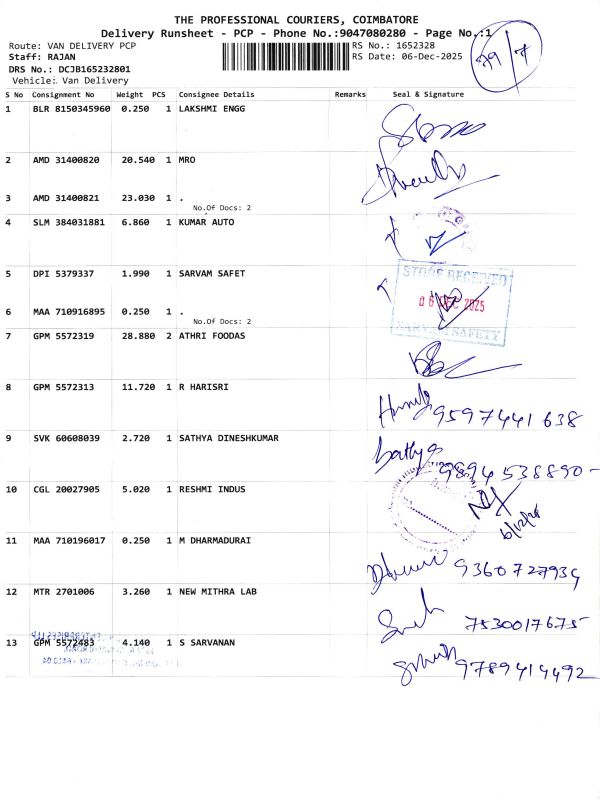 THE PROFESSIONAL COURIERS, COIMBATORE
Delivery Runsheet - PCP - Phone No.:9047080280 - Page No.:1
Route: VAN DELIVERY PCP RS No.: 1652328
Staff: RAJAN RS Date: 06-Dec-2025
DRS No.: DCJB165232801
Vehicle: Van Delivery
79/7
S No Consignment No Weight PCS Consignee Details Remarks Seal & Signature
1 BLR 8150345960 0.250 1 LAKSHMI ENGG
2 AMD 31400820 20.540 1 MRO
3 AMD 31400821 23.030 1 .
No.Of Docs: 2
4 SLM 384031881 6.860 1 KUMAR AUTO
5 DPI 5379337 1.990 1 SARVAM SAFET
STORE RECEIVED
06 DEC 2025
SARVAM SAFETY
6 MAA 710916895 0.250 1 .
No.Of Docs: 2
7 GPM 5572319 28.880 2 ATHRI FOODAS
8 GPM 5572313 11.720 1 R HARISRI
9597441638
9 SVK 60608039 2.720 1 SATHYA DINESHKUMAR
Sathya
9894538890-
10 CGL 20027905 5.020 1 RESHMI INDUS
6/12/25
11 MAA 710196017 0.250 1 M DHARMADURAI
9360727939
12 MTR 2701006 3.260 1 NEW MITHRA LAB
7530017675-
13 GPM 5572483 4.140 1 S SARVANAN
9789414492